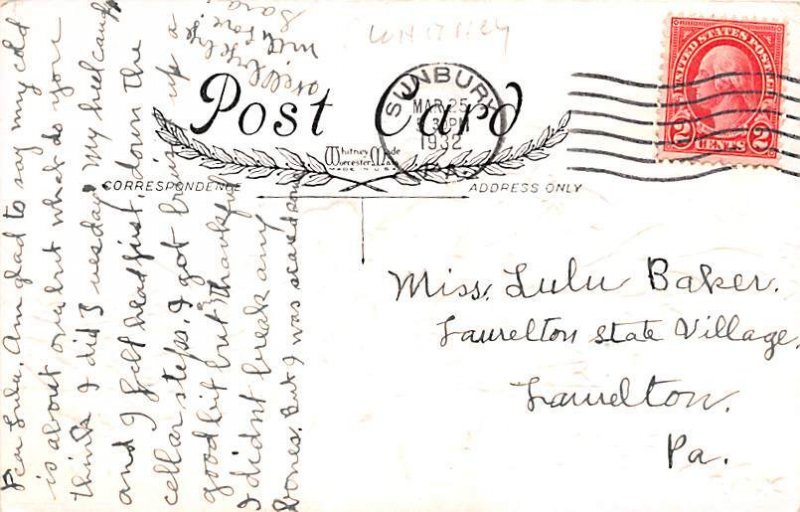 Dear Lulu, Am glad to say my cold
is about over but what do you
think I did Tuesday, my heel caught
and I fell head first, down the
cellar steps, I got bruised up a
good bit but thankful
I didnt break any
bones. But I was scared some
with love.
Sara
WHITNEY
Post Card
Whitney Made
Worcester Mass
MADE IN U.S.A.
CORRESPONDENCE
ADDRESS ONLY
SUNBURY
MAR 25
3 30 PM
1932
PA.
UNITED STATES POSTAGE
2 2
CENTS
Miss. Lulu Baker.
Laurelton State Village,
Laurelton.
Pa.